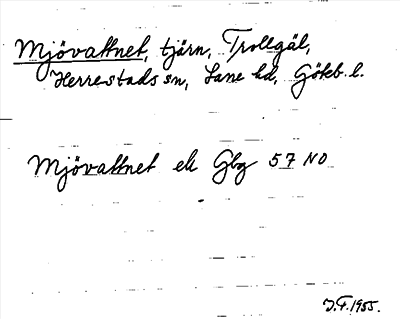 Mjövattnet, tjärn, Trollgäl,
Herrestads sn, Lane hd, Göteb. l.
Mjövattnet ek Gbg 57 NO
J.F. 1955.